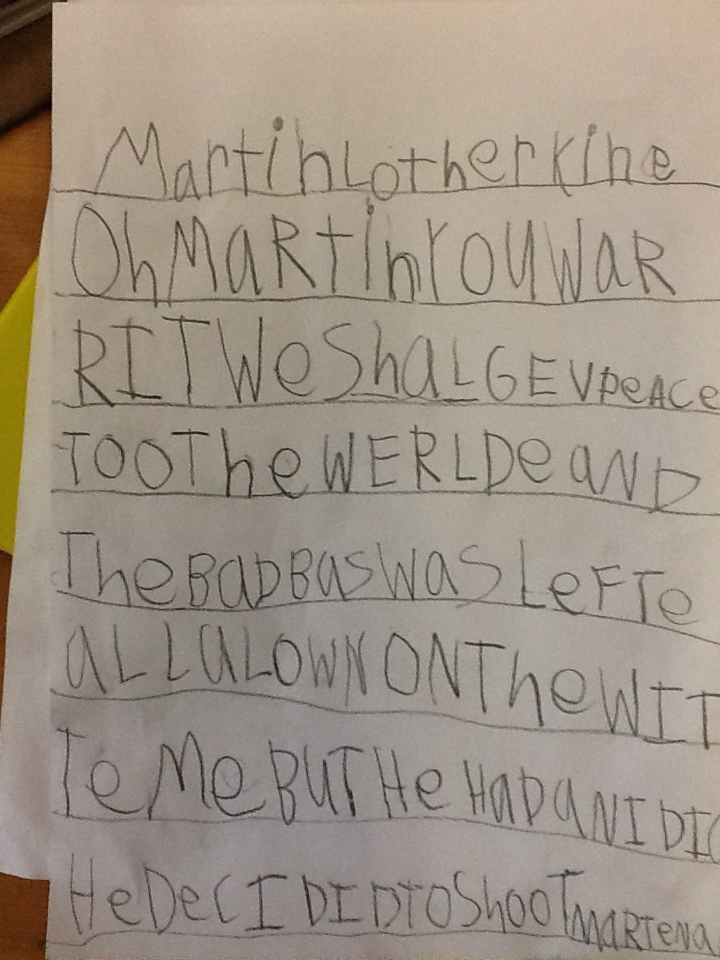 Martin Lother Kine
Oh MaRtin YOU WaR
RIT We ShaL GEV PeACe
TOO The WERLDe aND
The BaD Bas Was LeFTe
aLL aLOWN ON The WIT
Te Me BUT He HaD aN IDI
He DeCIDID TO ShOOT MaRTeNa